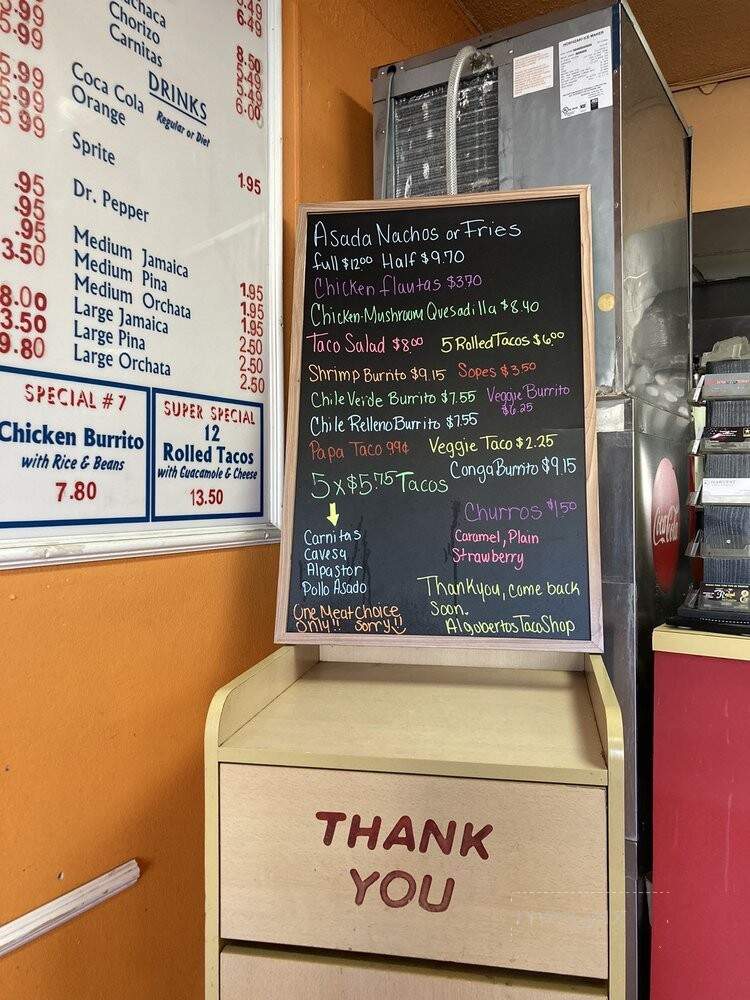 Chorizo
Carnitas
5.99
6.49
8.50
5.49
5.49
6.00
5.99
5.99
5.99
DRINKS
Regular or Diet
Coca Cola
Orange
Sprite
Dr. Pepper
1.95
.95
.95
.95
3.50
Medium Jamaica 1.95
Medium Pina 1.95
Medium Orchata 1.95
Large Jamaica 2.50
Large Pina 2.50
Large Orchata 2.50
8.00
3.50
9.80
SPECIAL # 7
Chicken Burrito
with Rice & Beans
7.80
SUPER SPECIAL
12
Rolled Tacos
with Guacamole & Cheese
13.50
Asada Nachos or Fries
full $12.00 Half $9.70
Chicken flautas $3.70
Chicken-Mushroom Quesadilla $8.40
Taco Salad $8.00 5 Rolled Tacos $6.00
Shrimp Burrito $9.15 Sopes $3.50
Chile Verde Burrito $7.55 Veggie Burrito
$6.25
Chile Relleno Burrito $7.55
Papa Taco 99¢ Veggie Taco $2.25
5 x $5.75 Tacos Conga Burrito $9.15
Churros $1.50
Carnitas
Cavesa
Alpastor
Pollo Asado
Caramel, Plain
Strawberry
One Meat Choice
Only!! Sorry!!
Thankyou, come back
Soon.
Algobertos Taco Shop
THANK
YOU
HOSHIZAKI ICE MAKER
Coca-Cola